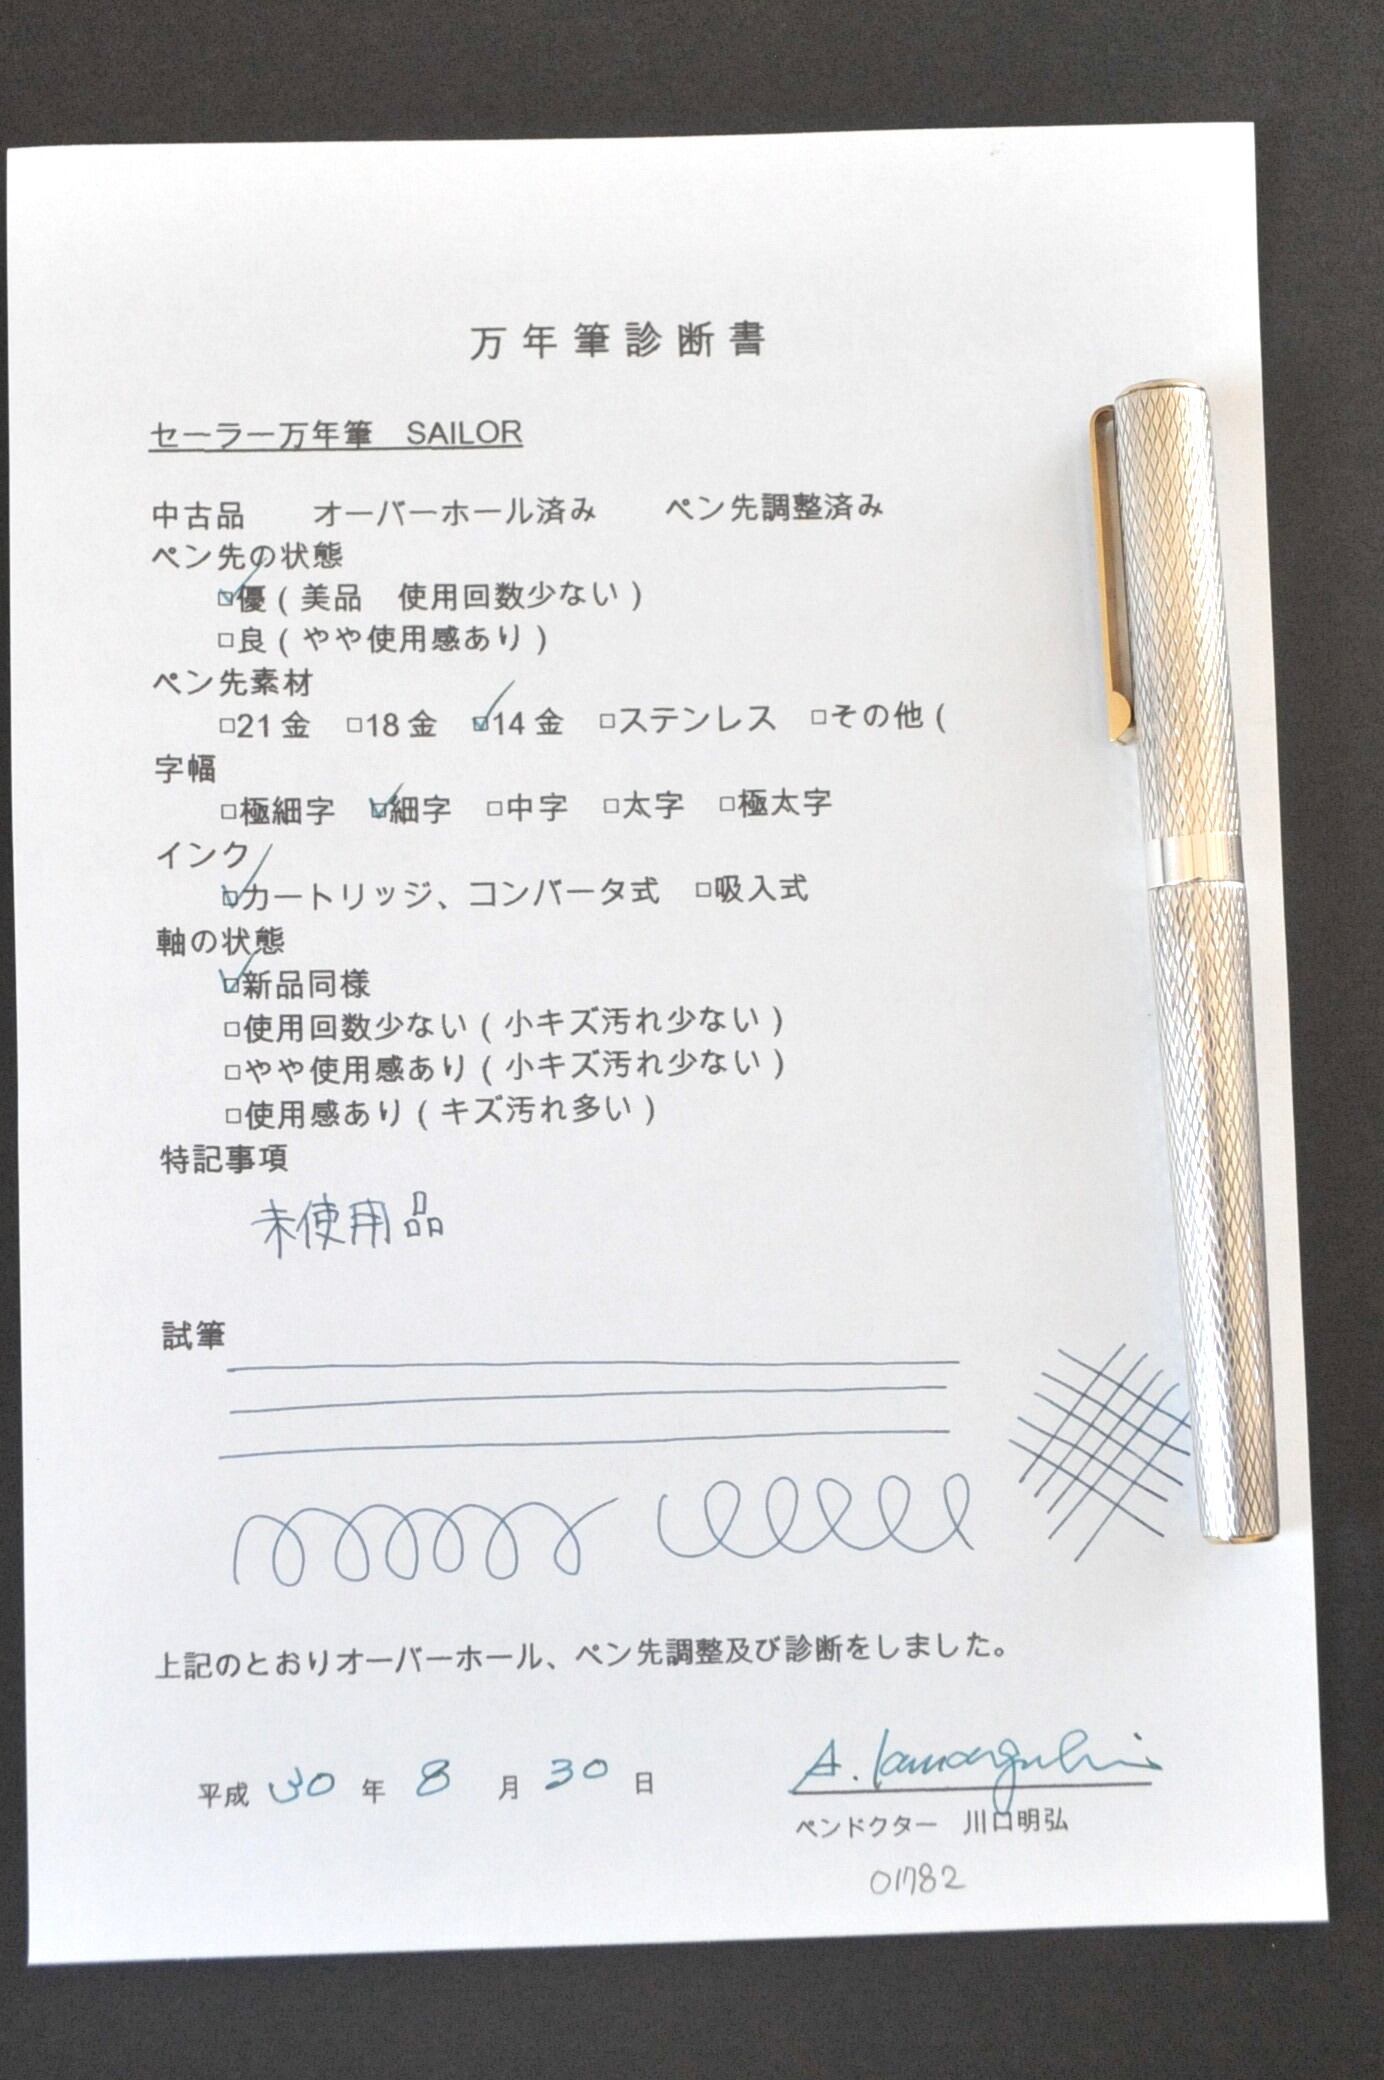 万年筆診断書
セーラー万年筆　SAILOR
中古品　　オーバーホール済み　　ペン先調整済み
ペン先の状態
☑優（美品　使用回数少ない）
□良（やや使用感あり）
ペン先素材
□21金　□18金　☑14金　□ステンレス　□その他（
字幅
□極細字　☑細字　□中字　□太字　□極太字
インク
☑カートリッジ、コンバータ式　□吸入式
軸の状態
☑新品同様
□使用回数少ない（小キズ汚れ少ない）
□やや使用感あり（小キズ汚れ少ない）
□使用感あり（キズ汚れ多い）
特記事項
未使用品
試筆
上記のとおりオーバーホール、ペン先調整及び診断をしました。
平成 30 年 8 月 30 日
A. Kawaguchi
ペンドクター　川口明弘
01782